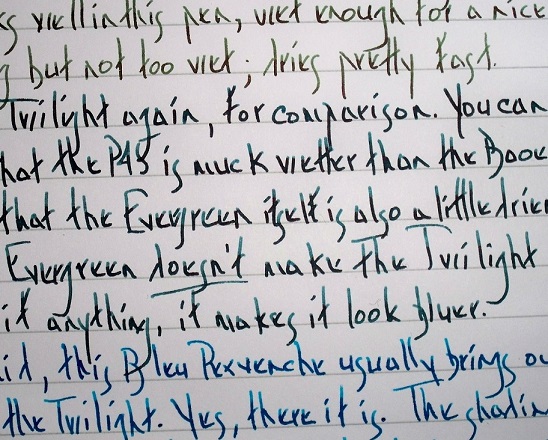 s well in this pen, wet enough for a nice
g but not too wet; dries pretty fast.
Twilight again, for comparison. You can
hat the P45 is much wetter than the Booe
that the Evergreen itself is also a little drier
Evergreen doesn't make the Twilight
if anything, it makes it look bluer.
id, this Bleu Pervenche usually brings ou
the Twilight. Yes, there it is. The shadin